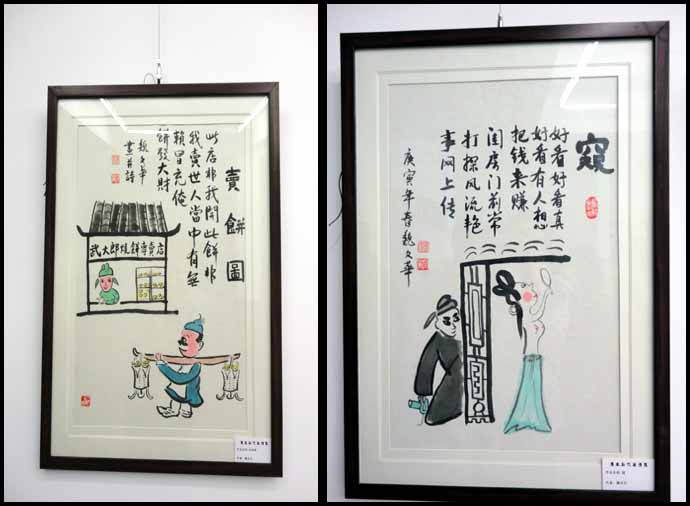 賣餅圖
此店非我開此餅非
我賣世人當中有無
賴冒充俺
餅發大財
魏文華
畫并詩
武大郎燒餅專賣店
窺
好看好看真
好看有人想
把钱来赚
闺房门前常
打探风流艳
事网上传
庚寅年春魏文華